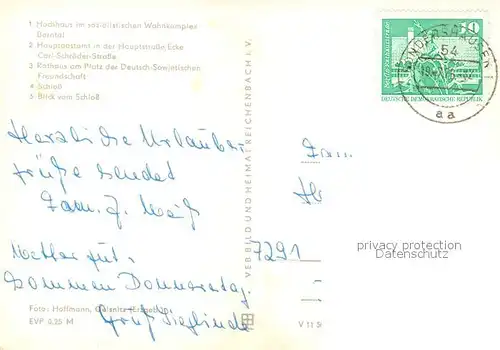 1 Hochhaus im sozialistischen Wohnkomplex
Borntal
2 Hauptpostamt in der Hauptstraße, Ecke
Carl-Schröder-Straße
3 Rathaus am Platz der Deutsch-Sowjetischen
Freundschaft
4 Schloß
5 Blick vom Schloß
Herzliche Urlauber
Grüße sendet
Fam.
Wetter gut.
kommen Donnerstag
Gruß Sieglinde
Foto: Hoffmann, Oelsnitz (Erzgeb.)
EVP 0,25 M
VEB BILD UND HEIMAT REICHENBACH I. V.
10
DEUTSCHE DEMOKRATISCHE REPUBLIK
SONDERSHAUSEN
54
aa
Fam.
7291
privacy protection
Datenschutz
V 11 50